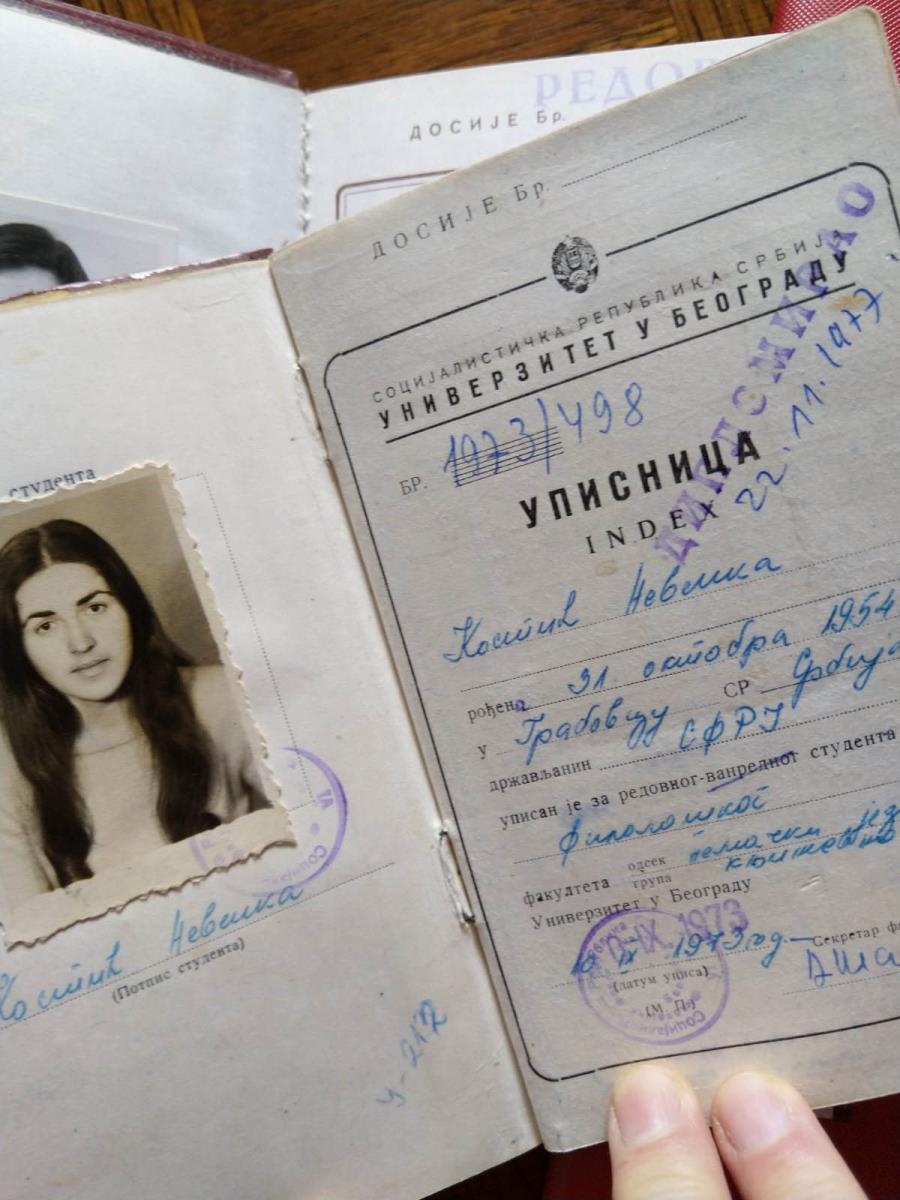 РЕДОВ
ДОСИЈЕ Бр.
студента
Костић Невенка
(Потпис студента)
У-217
ДОСИЈЕ Бр.
СОЦИЈАЛИСТИЧКА РЕПУБЛИКА СРБИЈА
УНИВЕРЗИТЕТ У БЕОГРАДУ
БР. 1973/498
ДИПЛОМИРАО
22. 11. 1977.
УПИСНИЦА
INDEX
Костић Невенка
рођена 21. октобра 1954
у Грабовцу СР Србија
држављанин СФРЈ
уписан је за редовног-ванредног студента
филолошког
факултета одсек немачки јез
група књижевност
Универзитет у Београду
10 IX 1973 год.
IX. 1973
(датум уписа)
Секретар фа
(М. П.)